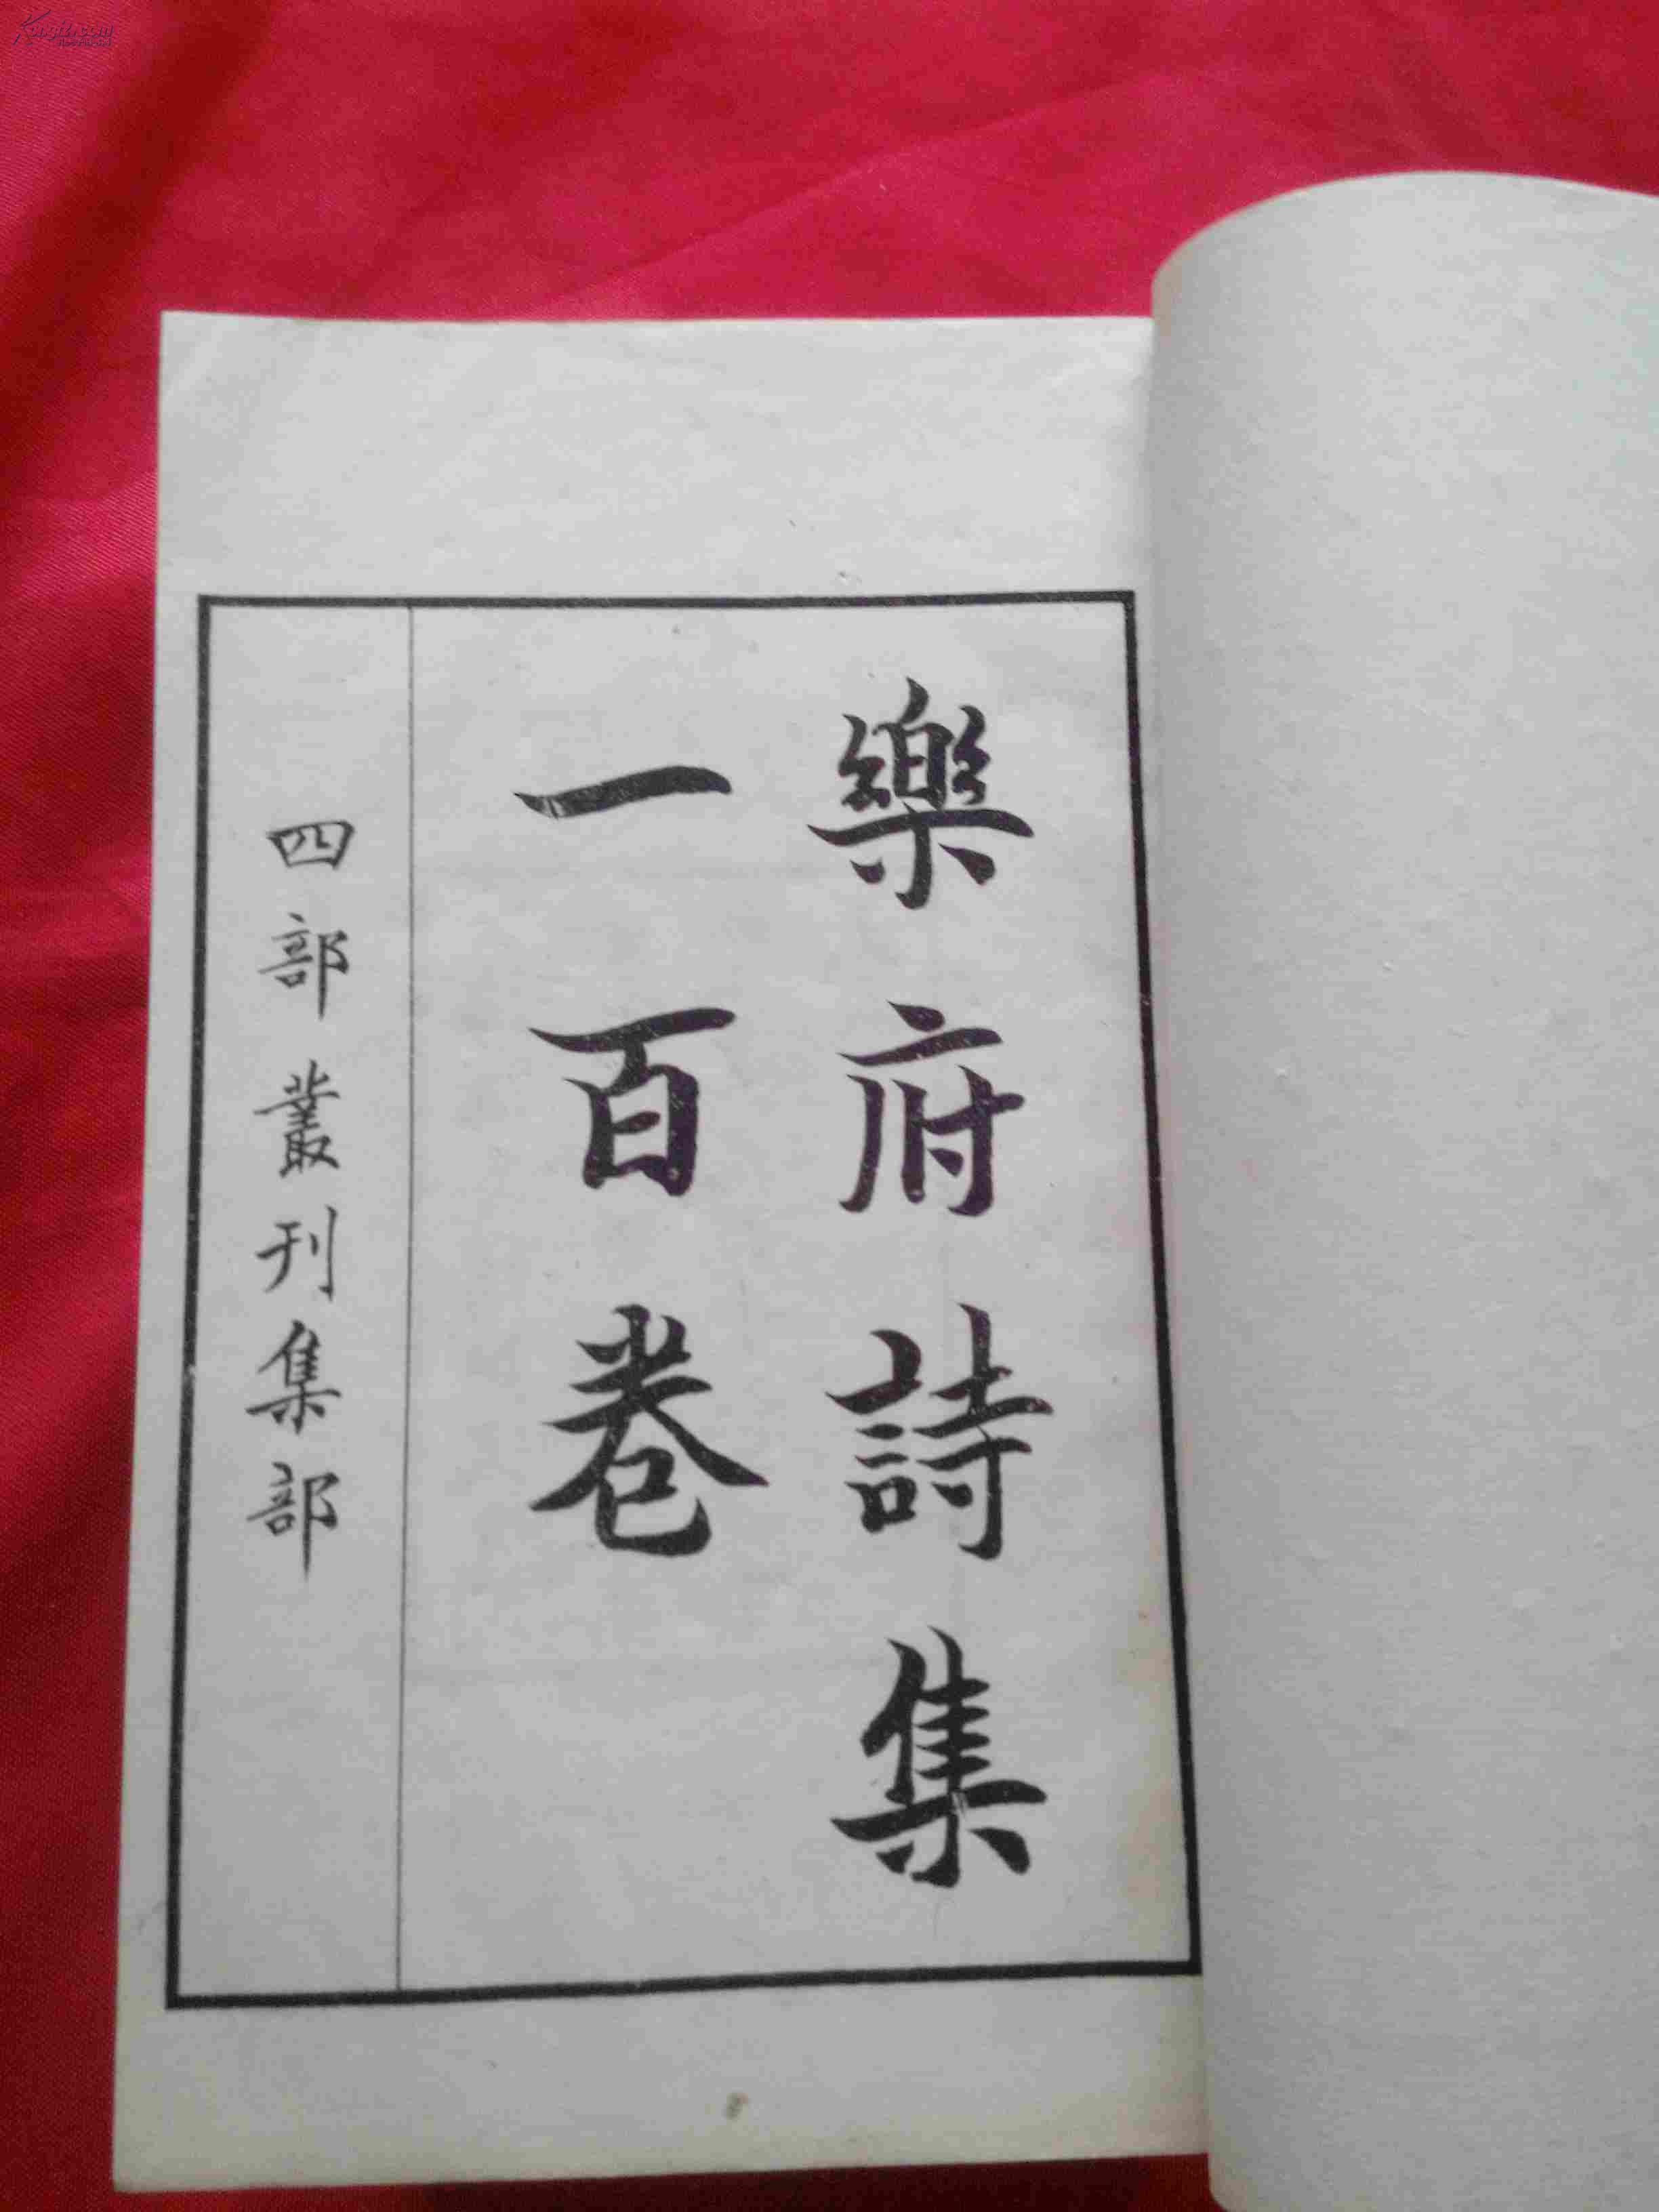 樂府詩集
一百卷
四部叢刊集部